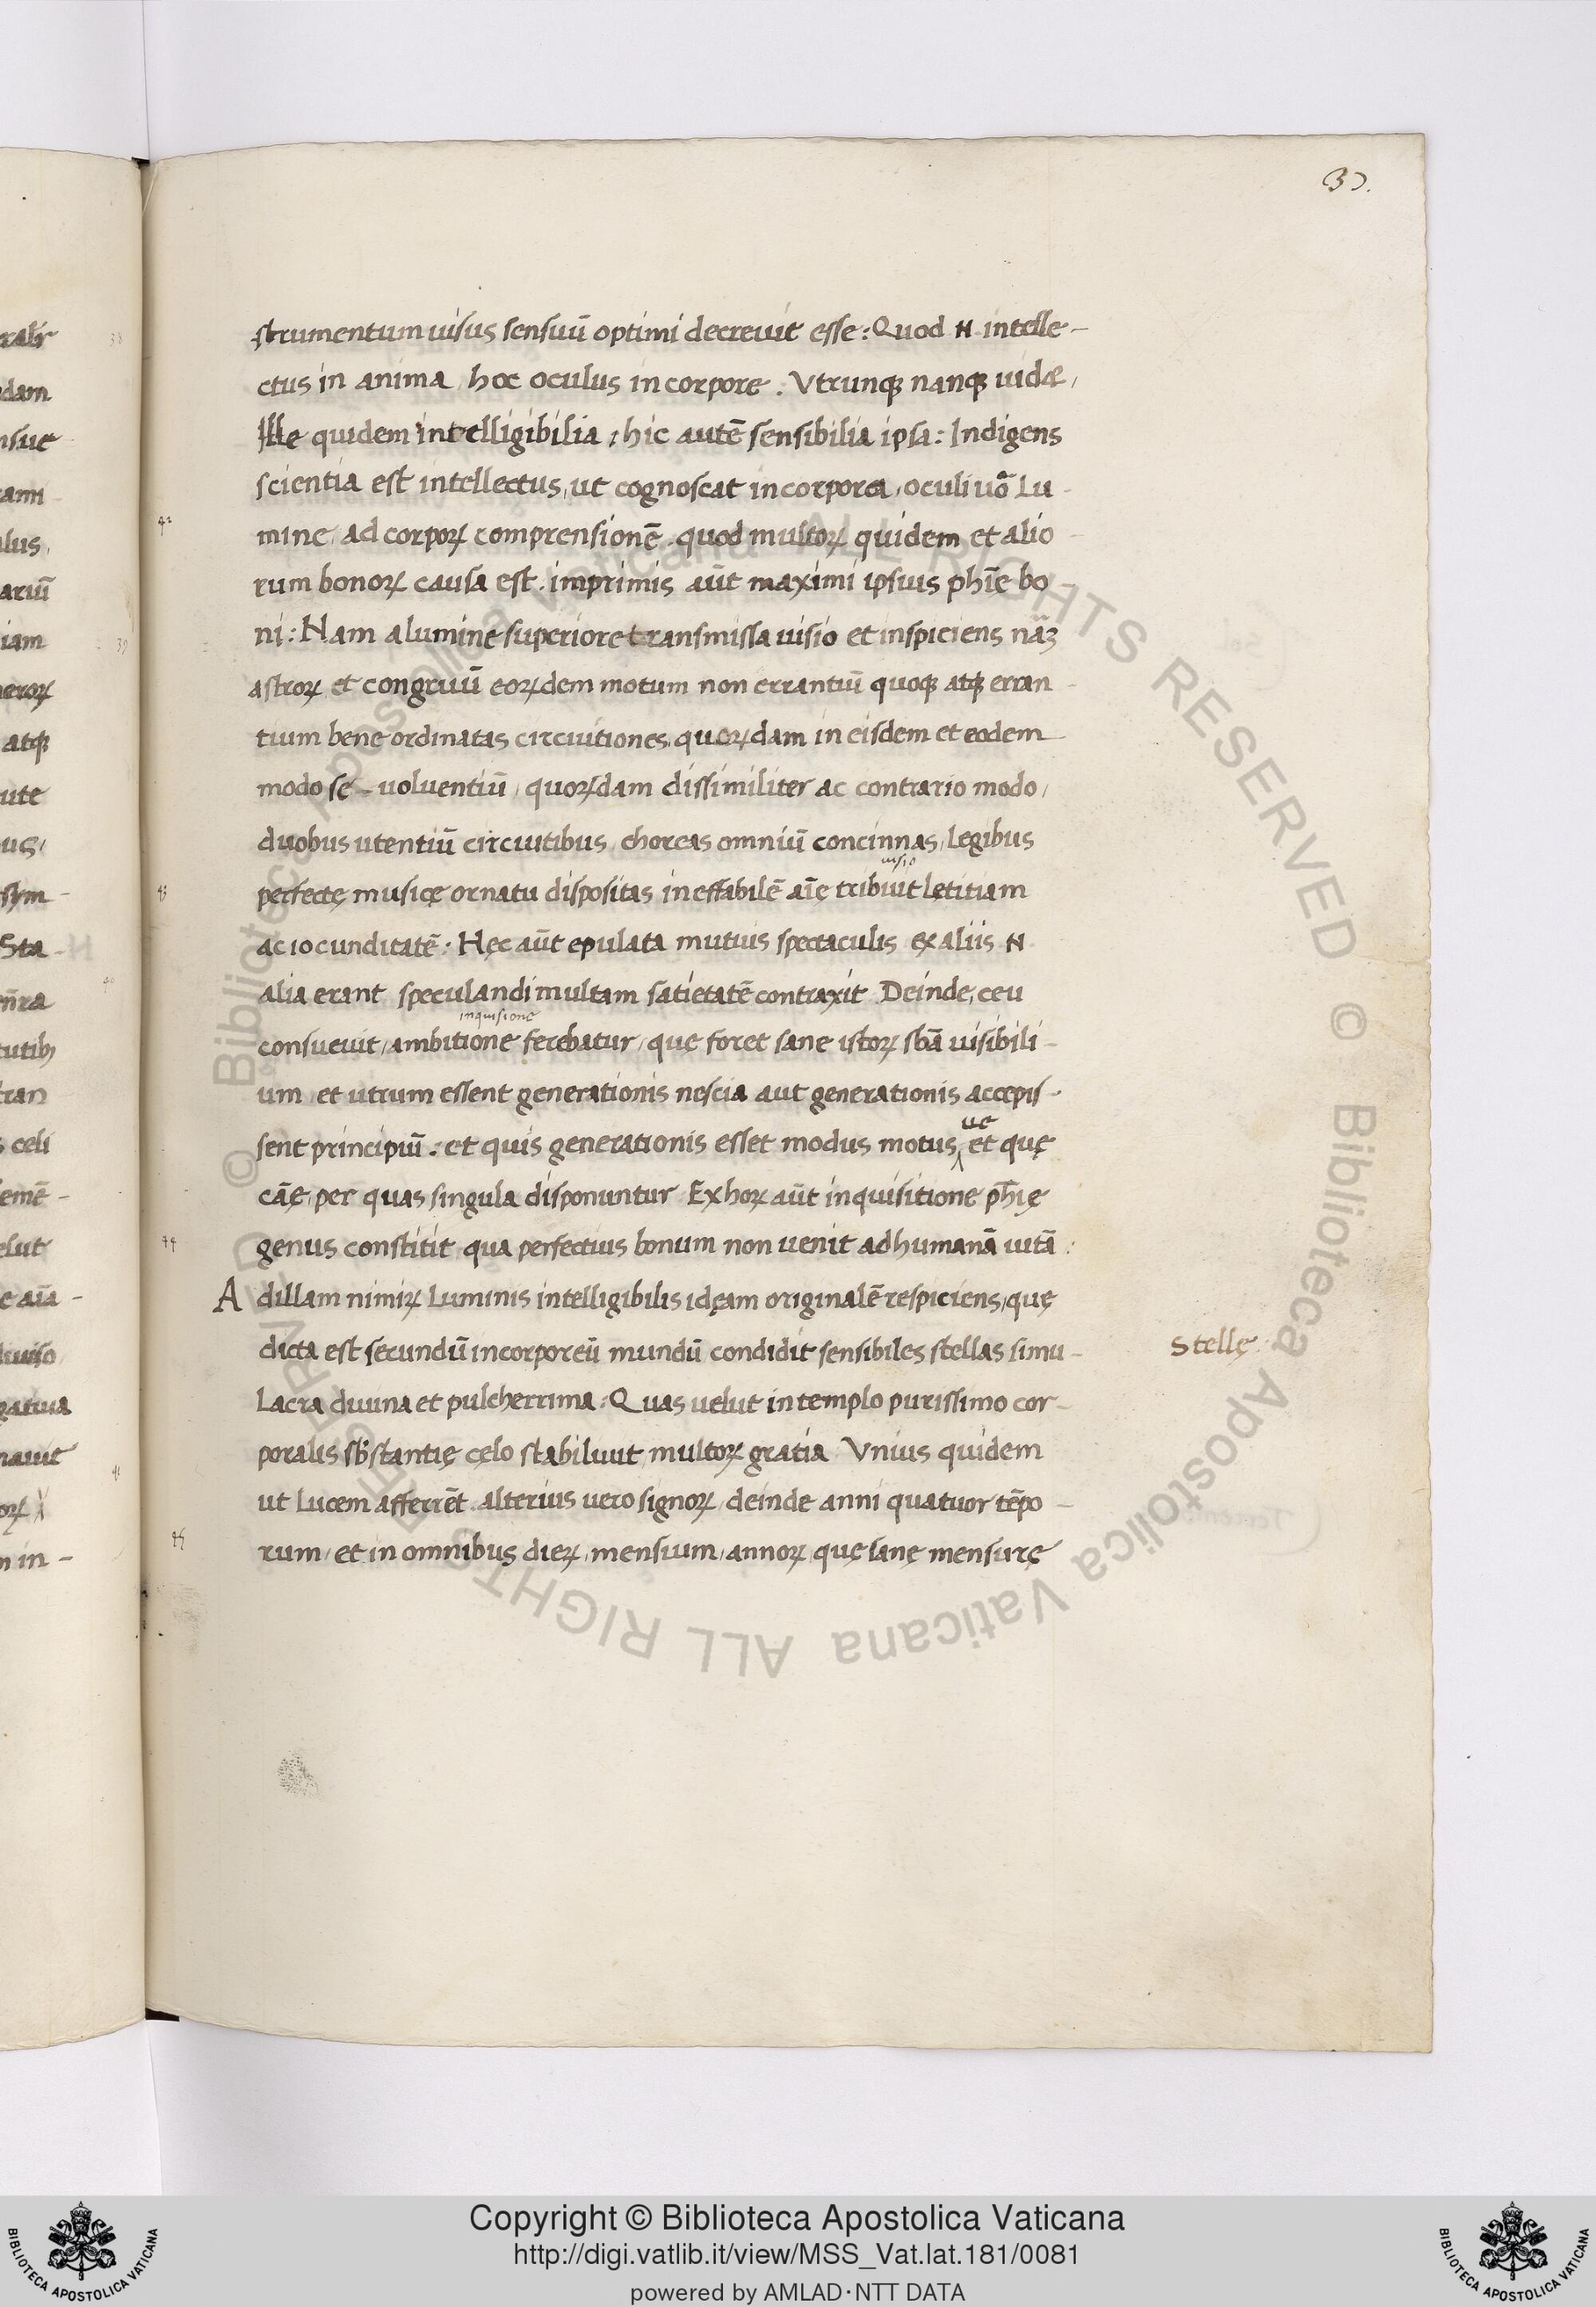 37.
strumentum uisus sensuū optimi decreuit esse : Quod .N. intelle-
ctus in anima, hoc oculus in corpore . Vtrunqꝫ nanqꝫ uidæ,
Ille quidem intelligibilia , hic autē sensibilia ipsa : Indigens
scientia est intellectus, ut cognoscat incorporea, oculi uō Lu-
mine, ad corporꝝ comprensionē . quod multorꝝ quidem et alio-
rum bonorꝝ causa est . imprimis aūt maximi ipsius phīe bo-
ni : Nam a lumine superiore transmissa uisio et inspiciens nāꝫ
astrorꝝ et congruū eorꝝdem motum non errantiū quoqꝫ atqꝫ erran-
tium bene ordinatas circuitiones, quorꝝdam in eisdem et eodem
modo se uoluentiū, quorꝝdam dissimiliter ac contrario modo,
duobus utentiū circuitibus, choreas omniū concinnas, legibus
uisio
perfectę musicę ornatu dispositas ineffabilē aīę tribuit lętitiam
ac iocunditatē : Hęc aūt epulata mutuis spectaculis ex aliis .N.
alia erant speculandi multam satietatē contraxit Deinde, ceu
inquisione
consueuit, ambitione ferebatur, quę foret sane istorꝝ sbā uisibili-
um et utrum essent generationis nescia aut generationis accepis-
ue
sent principiū : et quis generationis esset modus motus, et quę
cāę, per quas singula disponuntur Ex horꝝ aūt inquisitione phīę
genus constitit qua perfectius bonum non uenit ad humanā uitā :
A dillam nimirꝝ Luminis intelligibilis idęam originalē respiciens, quę
dicta est secundū incorporeū mundū condidit sensibiles stellas simu-
Stellę
Lacra diuina et pulcherrima : Quas uelut in templo purissimo cor-
poralis sbstantię cęlo stabiliuit multorꝝ gratia Vnius quidem
ut Lucem afferrēt . alterius uero signorꝝ, deinde anni quatuor tēpo-
rum, et in omnibus dierꝝ, mensium, annorꝝ, quę sanę mensurę
42
43
44
45
Copyright © Biblioteca Apostolica Vaticana
http://digi.vatlib.it/view/MSS_Vat.lat.181/0081
powered by AMLAD·NTT DATA
BIBLIOTECA APOSTOLICA VATICANA
BIBLIOTECA APOSTOLICA VATICANA
© Biblioteca Apostolica Vaticana ALL RIGHTS RESERVED © Biblioteca Apostolica Vaticana ALL RIGHTS RESERVED